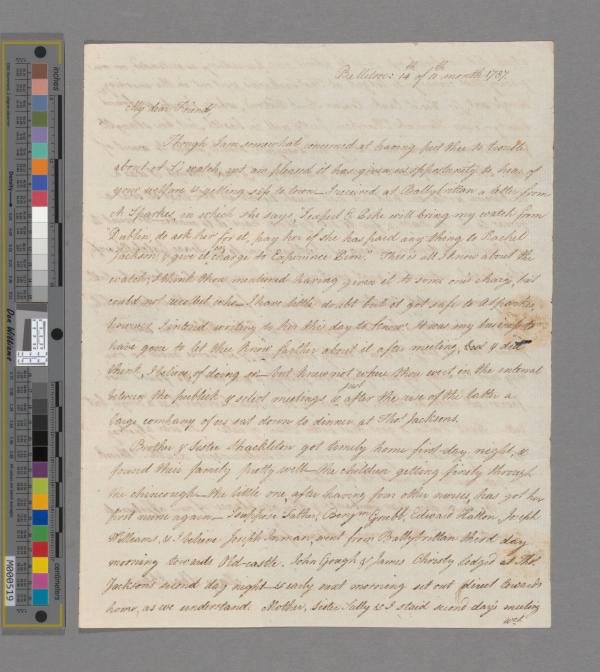 Ballitore: 14th of 11th month 1787.
My dear Friend,
Though I am somewhat concerned at having put thee to trouble
about A S's watch, yet am pleased it has given us opportunity to hear of
your welfare & getting safe to town. I received at Ballybrittan a letter from
A Sparkes, in which she says, "I expect E Pike will bring my watch from
Dublin, do ask her for it, pay her if she has paid any thing to Rachel
Jackson, & give it in charge to Experience Bim." This is all I know about the
watch; I think thou mentioned having given it to some one's charge, but
could not recollect who. I have little doubt but it got safe to A Sparkes
however I intend writing to her this day to know. It was my business to
have gone to let thee know farther about it after meeting, & did
think, I believe, of doing so but knew not where thou went, in the interval
between the publick & select meetings & just after the rise of the latter a
large company of us sat down to dinner at Thos. Jacksons.
Brother & Sister Shackleton got timely home first day night, &
found their family pretty well the children getting finely through
the chincough the little one, after having four other nurses, has got her
first nurse again. I suppose Father, Benjn. Grubb, Edward Hatton, Joseph
Williams, & I believe Joseph Inman, went from Ballybrittan third day
morning towards Old-castle. John Gough & James Christy lodg'd at Thos.
Jacksons second day night & early next morning set out direct towards
home, as we understand. Mother, sister Sally & I staid second day's meeting
wch.
inches
centimeters
Don Williams
M000519